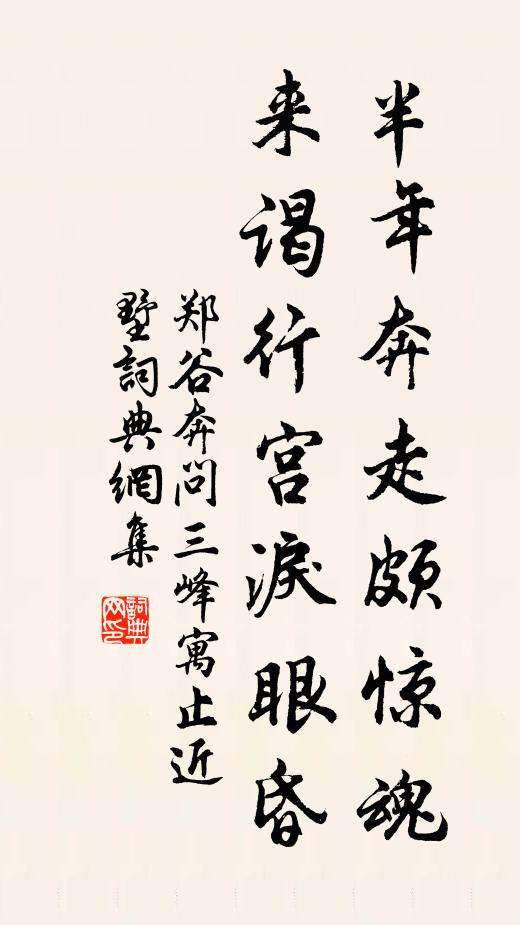 半年奔走颇惊魂
来谒行宫淚眼昏
郑谷奔问三峰寓止近
墅詞典網集
詞典
网印